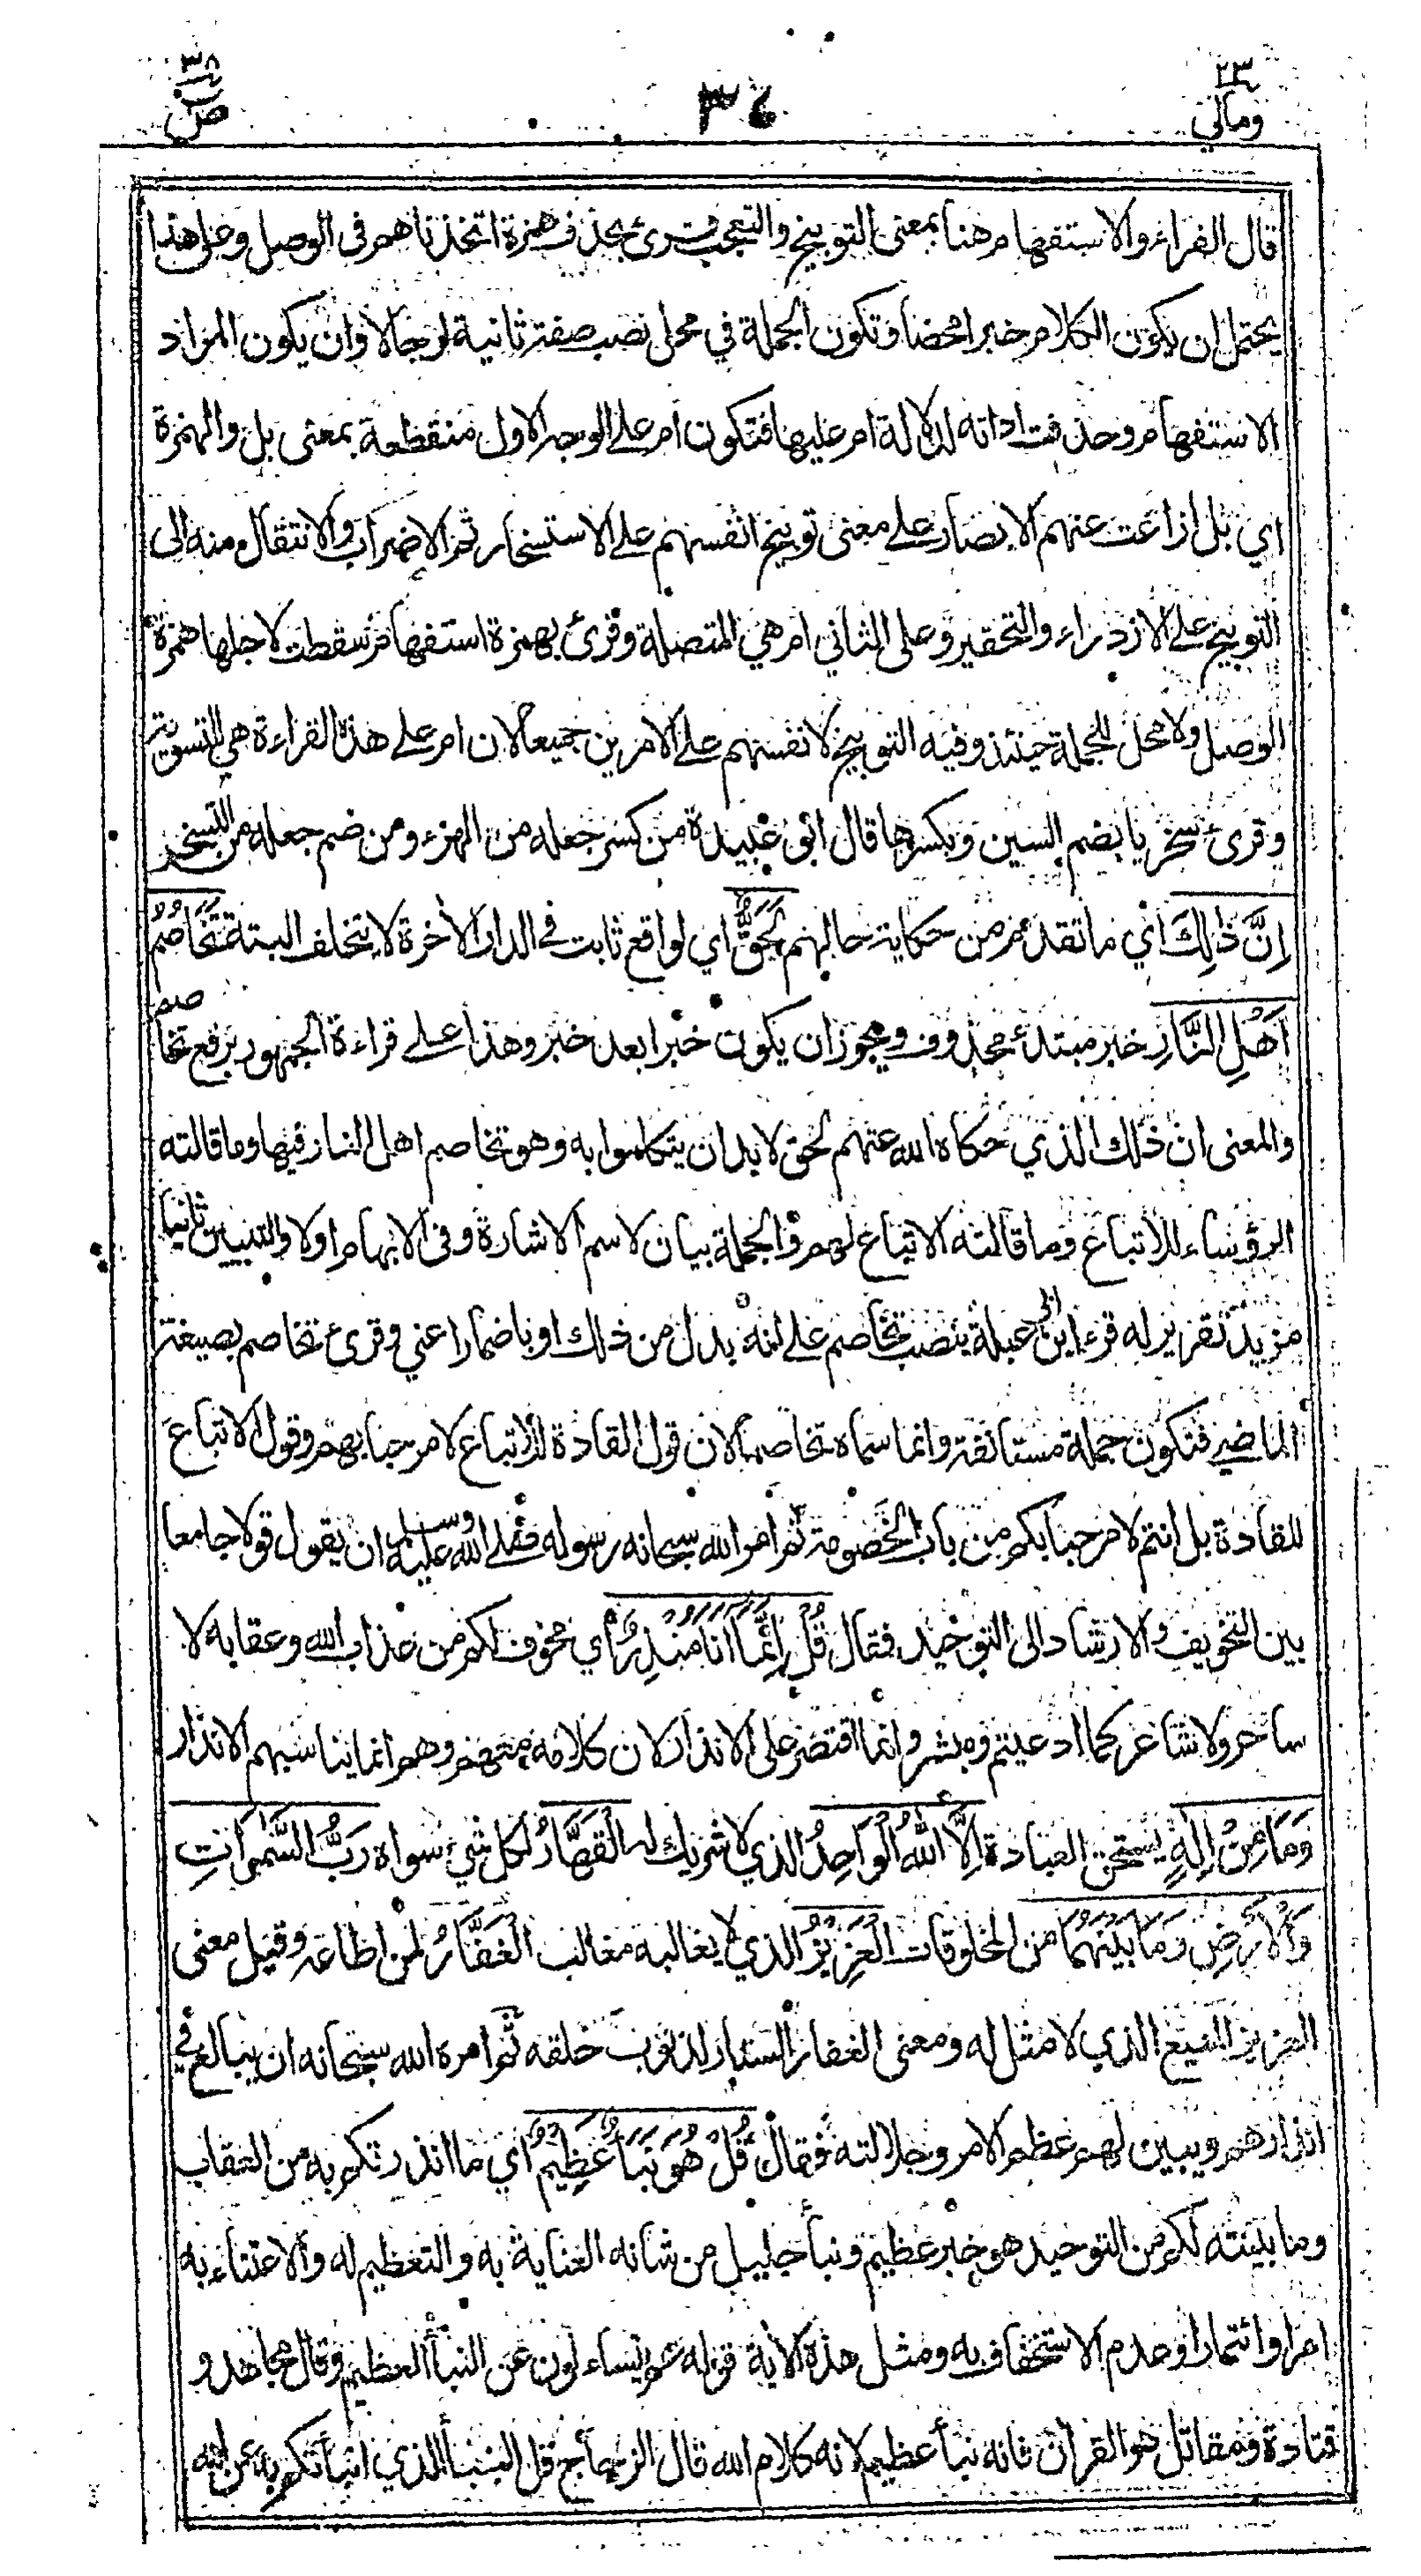 ٢٣
ومالي
٣٤
٣٨
ص
قال الفراء والاستفهام هنا بمعنى التوبيخ والتعجب قرئ بحذف همزة اتخذناهم في الوصل وعلى هذا
يحتمل ان يكون الكلام خبرا محضا وتكون الجملة في محل نصب صفة ثانية لرجالا وان يكون المراد
الاستفهام وحذفت اداته لدلالة ام عليها فتكون ام على الوجه الاول منقطعة بمعنى بل والهمزة
اي بل ازاغت عنهم الابصار على معنى توبيخ انفسهم على الاستسخار ثم الاضراب والانتقال منه الى
التوبيخ على الازدراء والتحقير وعلى الثاني ام هي المتصلة وقرئ بهمزة استفهام سقطت لاجلها همزة
الوصل ولا محل للجملة حينئذ وفيه التوبيخ لانفسهم على الامرين جميعا لان ام على هذه القراءة هي للتسوية
وقرئ سخريا بضم السين وبكسرها قال ابو عبيدة من كسر جعله من الهزء ومن ضم جعله من التسخير
اِنَّ ذٰلِكَ اي ما تقدم من حكاية حالهم لَحَقٌّ اي لواقع ثابت في الدار الاخرة لا يتخلف البتة تَخَاصُمُ
اَهْلِ النَّارِ خبر مبتدء محذوف ويجوز ان يكون خبرا بعد خبر وهذا على قراءة الجمهور برفع تخاصم
والمعنى ان ذلك الذي حكاه الله عنهم لحق لا بد ان يتكلموا به وهو تخاصم اهل النار فيها وما قالته
الرؤساء للأتباع وما قالته الاتباع لهم والجملة بيان لاسم الاشارة وفي الابهام اولا والتبيين ثانيا
مزيد تقرير له قرء ابن ابي عبلة بنصب تخاصم على انه بدل من ذلك او باضمار اعني وقرئ تخاصم بصيغة
الماضي فتكون جملة مستانفة وانما سماه تخاصما لان قول القادة للأتباع لا مرحبا بهم وقول الاتباع
للقادة بل انتم لا مرحبا بكم من باب الخصومة ثم امر الله سبحانه رسوله صلى الله عليه وسلم ان يقول قولا جامعا
بين التخويف والارشاد الى التوحيد فقال قُلْ اِنَّمَا اَنَا مُنْذِرٌ اي مخوف لكم من عذاب الله وعقابه لا
ساحر ولا شاعر كما ادعيتم ومبشر وانما اقتصر على الانذار لان كلامه معهم وهم انما يناسبهم الانذار
وَمَا مِنْ اِلٰهٍ يستحق العبادة اِلَّا اللّٰهُ الْوَاحِدُ الذي لا شريك له الْقَهَّارُ لكل شيء سواه رَبُّ السَّمٰوٰتِ
وَالْاَرْضِ وَمَا بَيْنَهُمَا من المخلوقات الْعَزِيْزُ الذي لا يغالبه مغالب الْغَفَّارُ لمن اطاعه وقيل معنى
العزيز المنيع الذي لا مثل له ومعنى الغفار الستار لذنوب خلقه ثم امره الله سبحانه ان يبالغ في
انذارهم ويبين لهم عظم الامر وجلالته فقال قُلْ هُوَ نَبَأٌ عَظِيْمٌ اي ما انذرتكم به من العقاب
وما بينته لكم من التوحيد هو خبر عظيم ونبأ جليل من شانه العناية به والتعظيم له والاعتناء به
امرا وائتمارا وعدم الاستخفاف به ومثل هذه الاية قوله عم يتساءلون عن النبأ العظيم وقال مجاهد و
قتادة ومقاتل هو القرآن فانه نبأ عظيم لانه كلام الله قال الزجاج قل النبأ الذي انبأتكم به عن الله